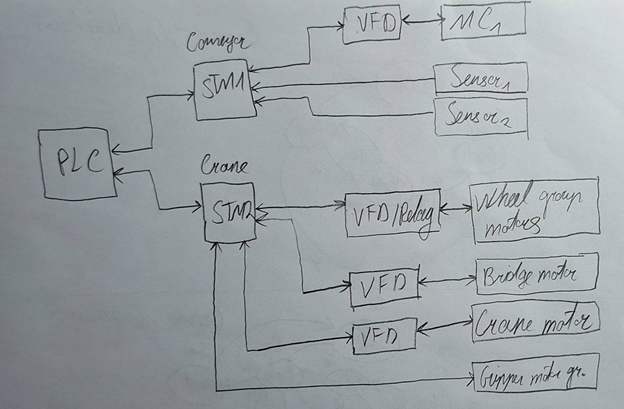 VFD
MC1
Conveyer
STM1
Sensor1
Sensor2
PLC
Crane
STM2
VFD/Relay
Wheel group
motors
VFD
Bridge motor
VFD
Crane motor
Gripper motor gr.